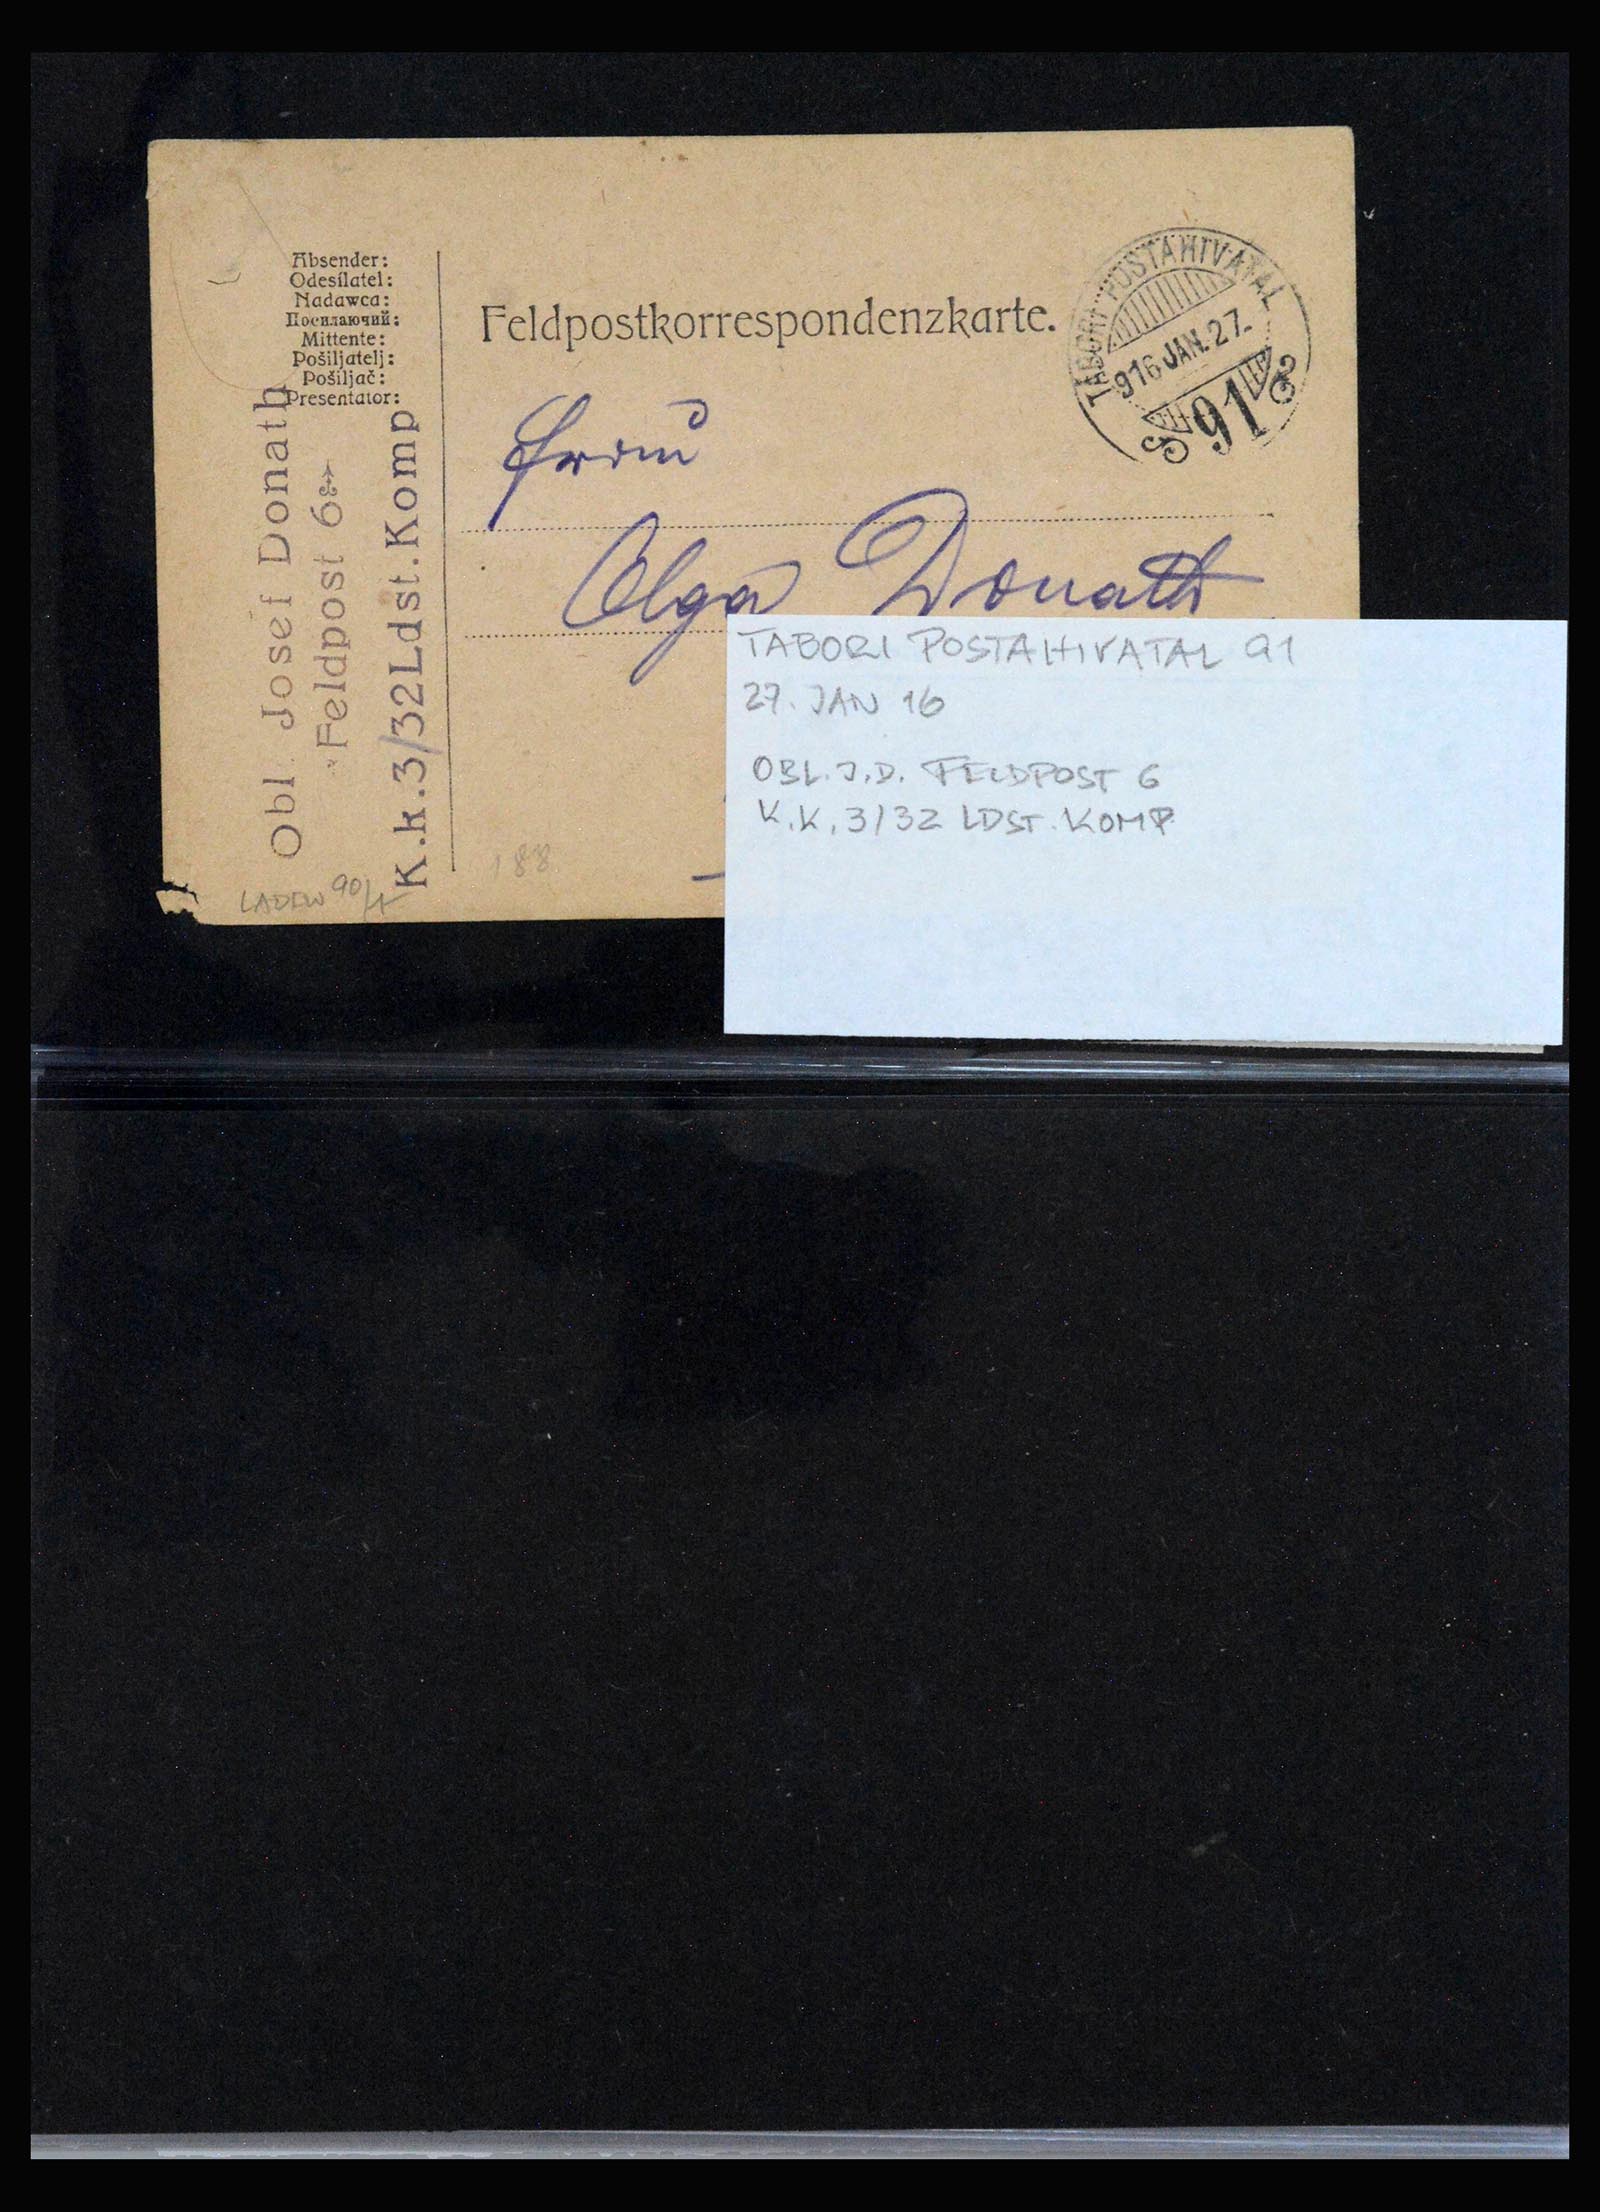 Absender:
Odesílatel:
Nadawca:
Посилаючий:
Mittente:
Pošiljatelj:
Pošiljač:
Presentator:
Obl. Josef Donath
Feldpost 6
K.k.3/32Ldst.Komp
Feldpostkorrespondenzkarte.
TÁBORI POSTAHIVATAL
916 JAN. 27.
91
Frau
Olga Donath
188
90/1
TABORI POSTAHIVATAL 91
27. JAN 16
OBL. J.D. FELDPOST 6
K.K. 3/32 LDST. KOMP.